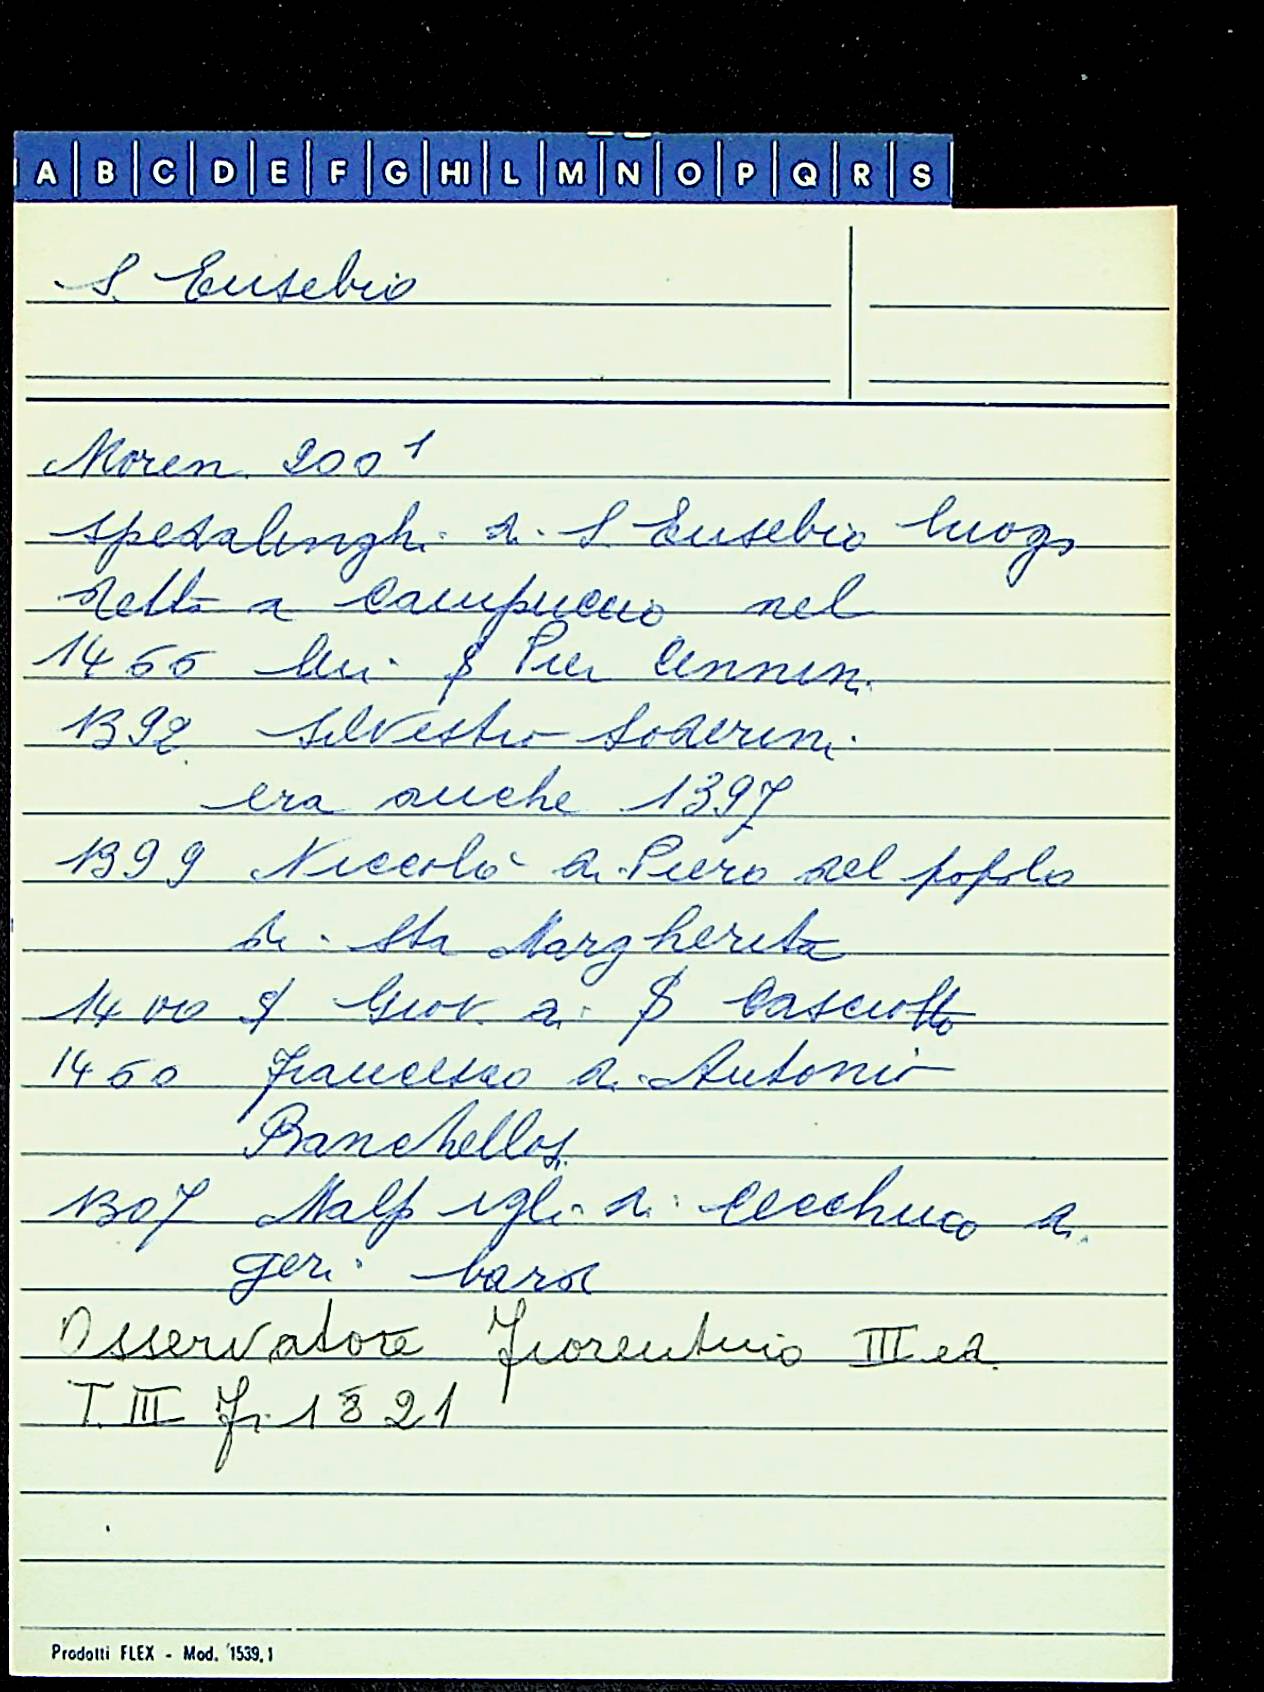 A B C D E F G HI L M N O P Q R S
S. Eusebio
Moren. 200¹
spedalinghi di S. Eusebio luogo
detto a Campuccio nel
1466 Pier Cennini
1392 Silvestro Soderini
era anche 1397
1399 Niccolò di Piero del popolo
di Sta Margherita
1400 S Giov. di S Casciotto
1460 Francesco di Antonio
Banchellos
1307 Malpigli di Cecchuco di
geri bard
Osservatore Fiorentino III ed.
T. III Fi 1821
Prodotti FLEX - Mod. 1539,1